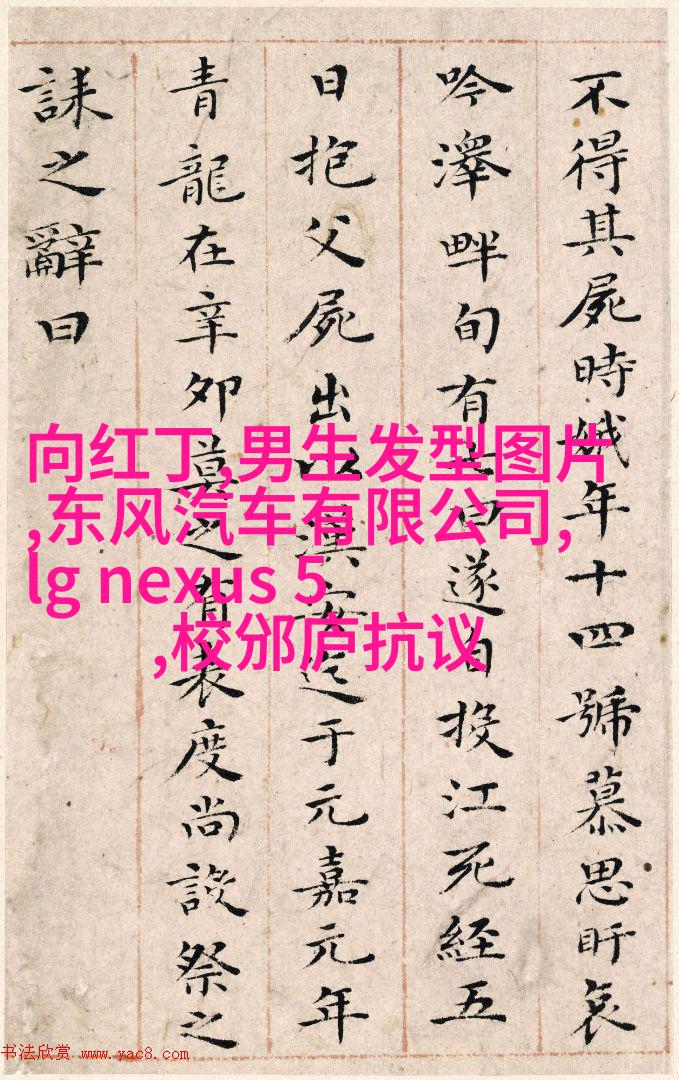 不得其屍時娥年十四號慕思盱哀
吟澤畔旬有七日遂自投江死經五
日抱父屍出以漢安迄于元嘉元年
青龍在辛卯莫之有表度尚設祭之
誄之辭曰
向红丁,男生发型图片
,东风汽车有限公司,
lg nexus 5
,校邠庐抗议
书法欣赏 www.yac8.com